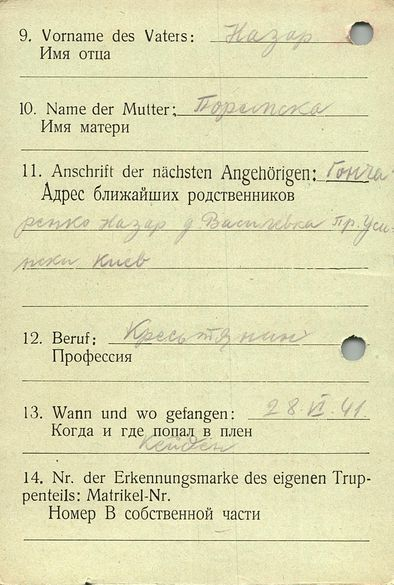 9. Vorname des Vaters: Назар
Имя отца
10. Name der Mutter:
Имя матери
11. Anschrift der nächsten Angehörigen: Гонча-
Адрес ближайших родственников
ренко Назар д Василевка
Киев
12. Beruf: Крестянин
Профессия
13. Wann und wo gefangen: 28. VI. 41.
Когда и где попал в плен
Кейден
14. Nr. der Erkennungsmarke des eigenen Trup-
penteils: Matrikel-Nr.
Номер В собственной части